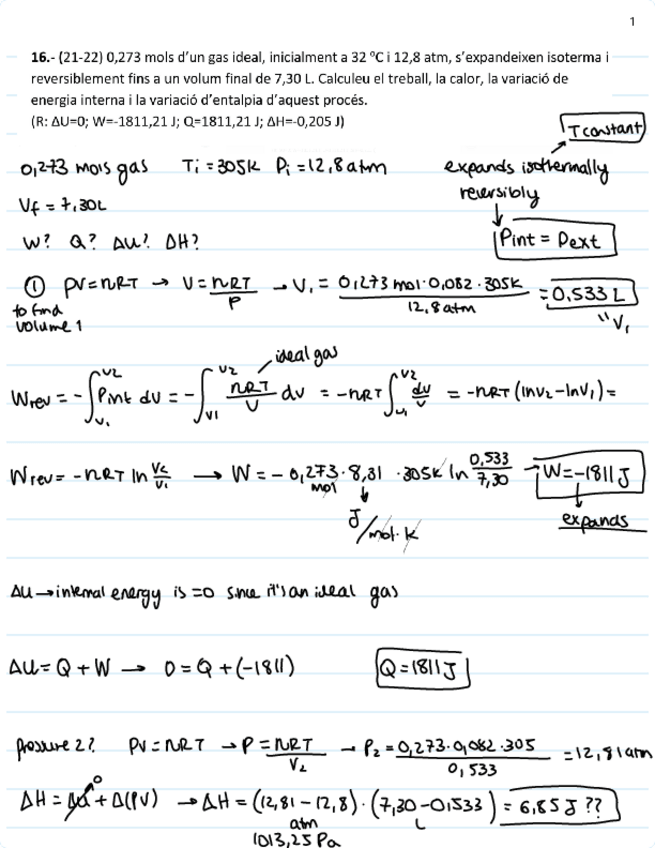 1
16.- (21-22) 0,273 mols d'un gas ideal, inicialment a 32 ºC i 12,8 atm, s'expandeixen isoterma i
reversiblement fins a un volum final de 7,30 L. Calculeu el treball, la calor, la variació de
energia interna i la variació d'entalpia d'aquest procés.
(R: ΔU=0; W=-1811,21 J; Q=1811,21 J; ΔH=-0,205 J)
T constant
0,273 mols gas Ti = 305K Pi = 12,8 atm expands isothermally
reversibly
Vf = 7,30L
W? Q? ΔU? ΔH? Pint = Pext
① PV = nRT → V = nRT/P → V1 = 0,273 mol · 0,082 · 305K / 12,8 atm = 0,533 L
to find
volume 1
"V1
ideal gas
Wrev = - ∫V1 V2 Pint dV = - ∫V1 V2 nRT/V dV = -nRT ∫V1 V2 dV/V = -nRT (lnV2 - lnV1) =
Wrev = -nRT ln V2/V1 → W = - 0,273 · 8,31 · 305K ln 0,533/7,30 → W = -1811 J
mol
J/mol·K
expands
ΔU → internal energy is =0 since it's an ideal gas
ΔU = Q + W → 0 = Q + (-1811) Q = 1811 J
pressure 2? PV = nRT → P = nRT/V2 → P2 = 0,273 · 0,082 · 305 / 0,533 = 12,81 atm
ΔH = ΔU 0 + Δ(PV) → ΔH = (12,81 - 12,8) · (7,30 - 0,533) = 6,85 J ??
atm L
1013,25 Pa